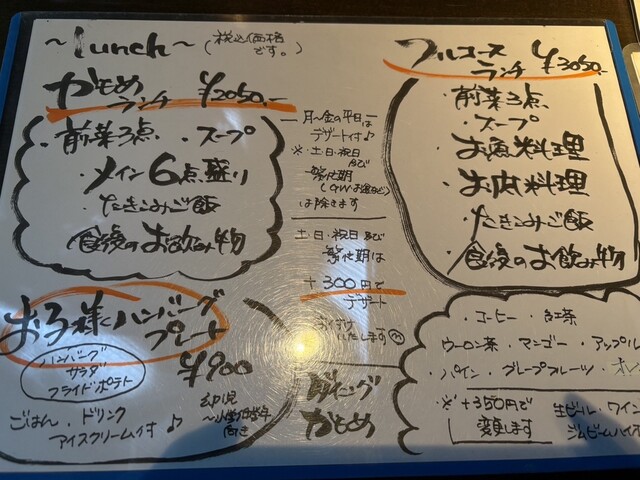 ~lunch~ (税込価格です。)
かもめランチ ¥2050.-
・前菜3点 ・スープ
・メイン6点盛り
・たきこみご飯
・食後のお飲み物
月~金の平日は
デザート付♪
※土・日・祝日
など
繁忙期
(GWお盆など)
は除きます
土・日・祝日など
繁忙期は
+300円で
デザート
お付け
いたします
フルコースランチ ¥3050.-
・前菜3点
・スープ
・お魚料理
・お肉料理
・たきこみご飯
・食後のお飲み物
お子様ハンバーグ
プレート
¥900
ハンバーグ
サラダ
フライドポテト
ごはん・ドリンク
アイスクリーム付♪
幼児
~小学低学年
向き
ダイニング
かもめ
・コーヒー ・紅茶
ウーロン茶・マンゴー・アップル
・パイン・グレープフルーツ・オレ
※+350円で
変更します
生ビール・ワイン
ジムビームハイ